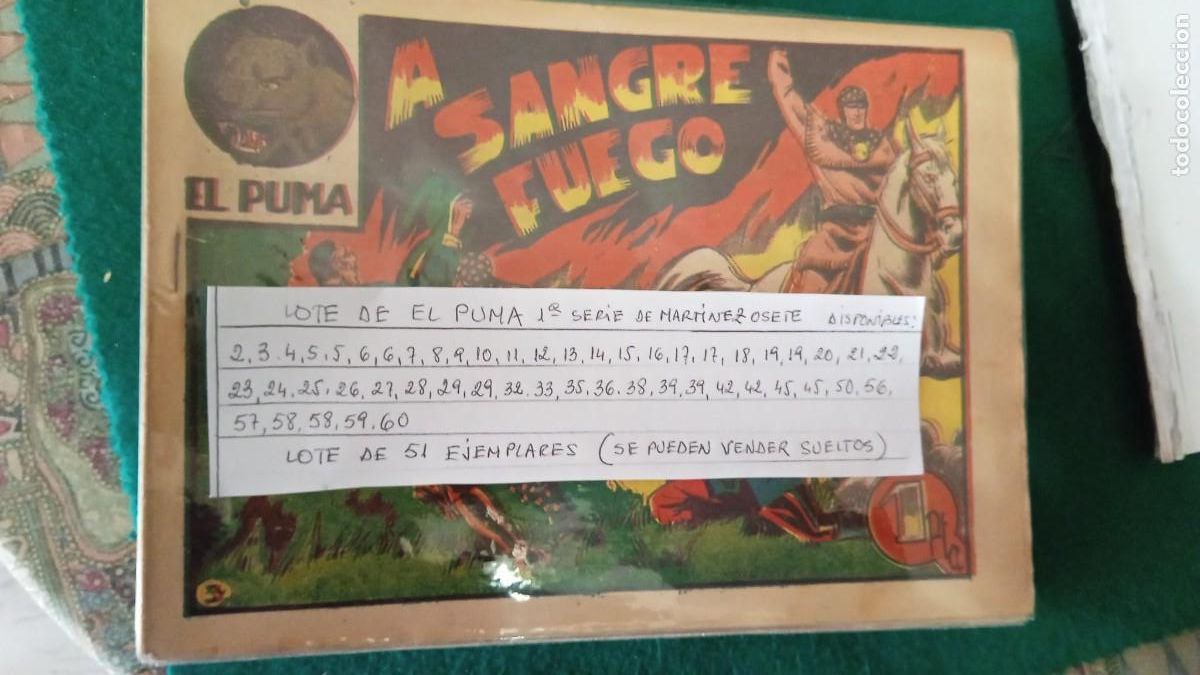 A
SANGRE
FUEGO
EL PUMA
LOTE DE EL PUMA 1ª SERIE DE MARTINEZ OSETE DISPONIBLES:
2, 3. 4, 5, 5, 6, 6, 7, 8, 9, 10, 11, 12, 13, 14, 15, 16, 17, 17, 18, 19, 19, 20, 21, 22,
23, 24, 25, 26, 27, 28, 29, 29, 32. 33, 35, 36. 38, 39, 39, 42, 42, 45, 45, 50, 56,
57, 58, 58, 59. 60
LOTE DE 51 EJEMPLARES (SE PUEDEN VENDER SUELTOS)
1 Pta
todocoleccion